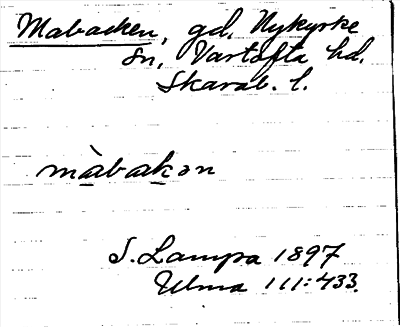 Mabacken, gd, Nykyrke
sn, Vartofta hd.
Skarab. l.
màbakən
S. Lampa 1897
Ulma 111:433.